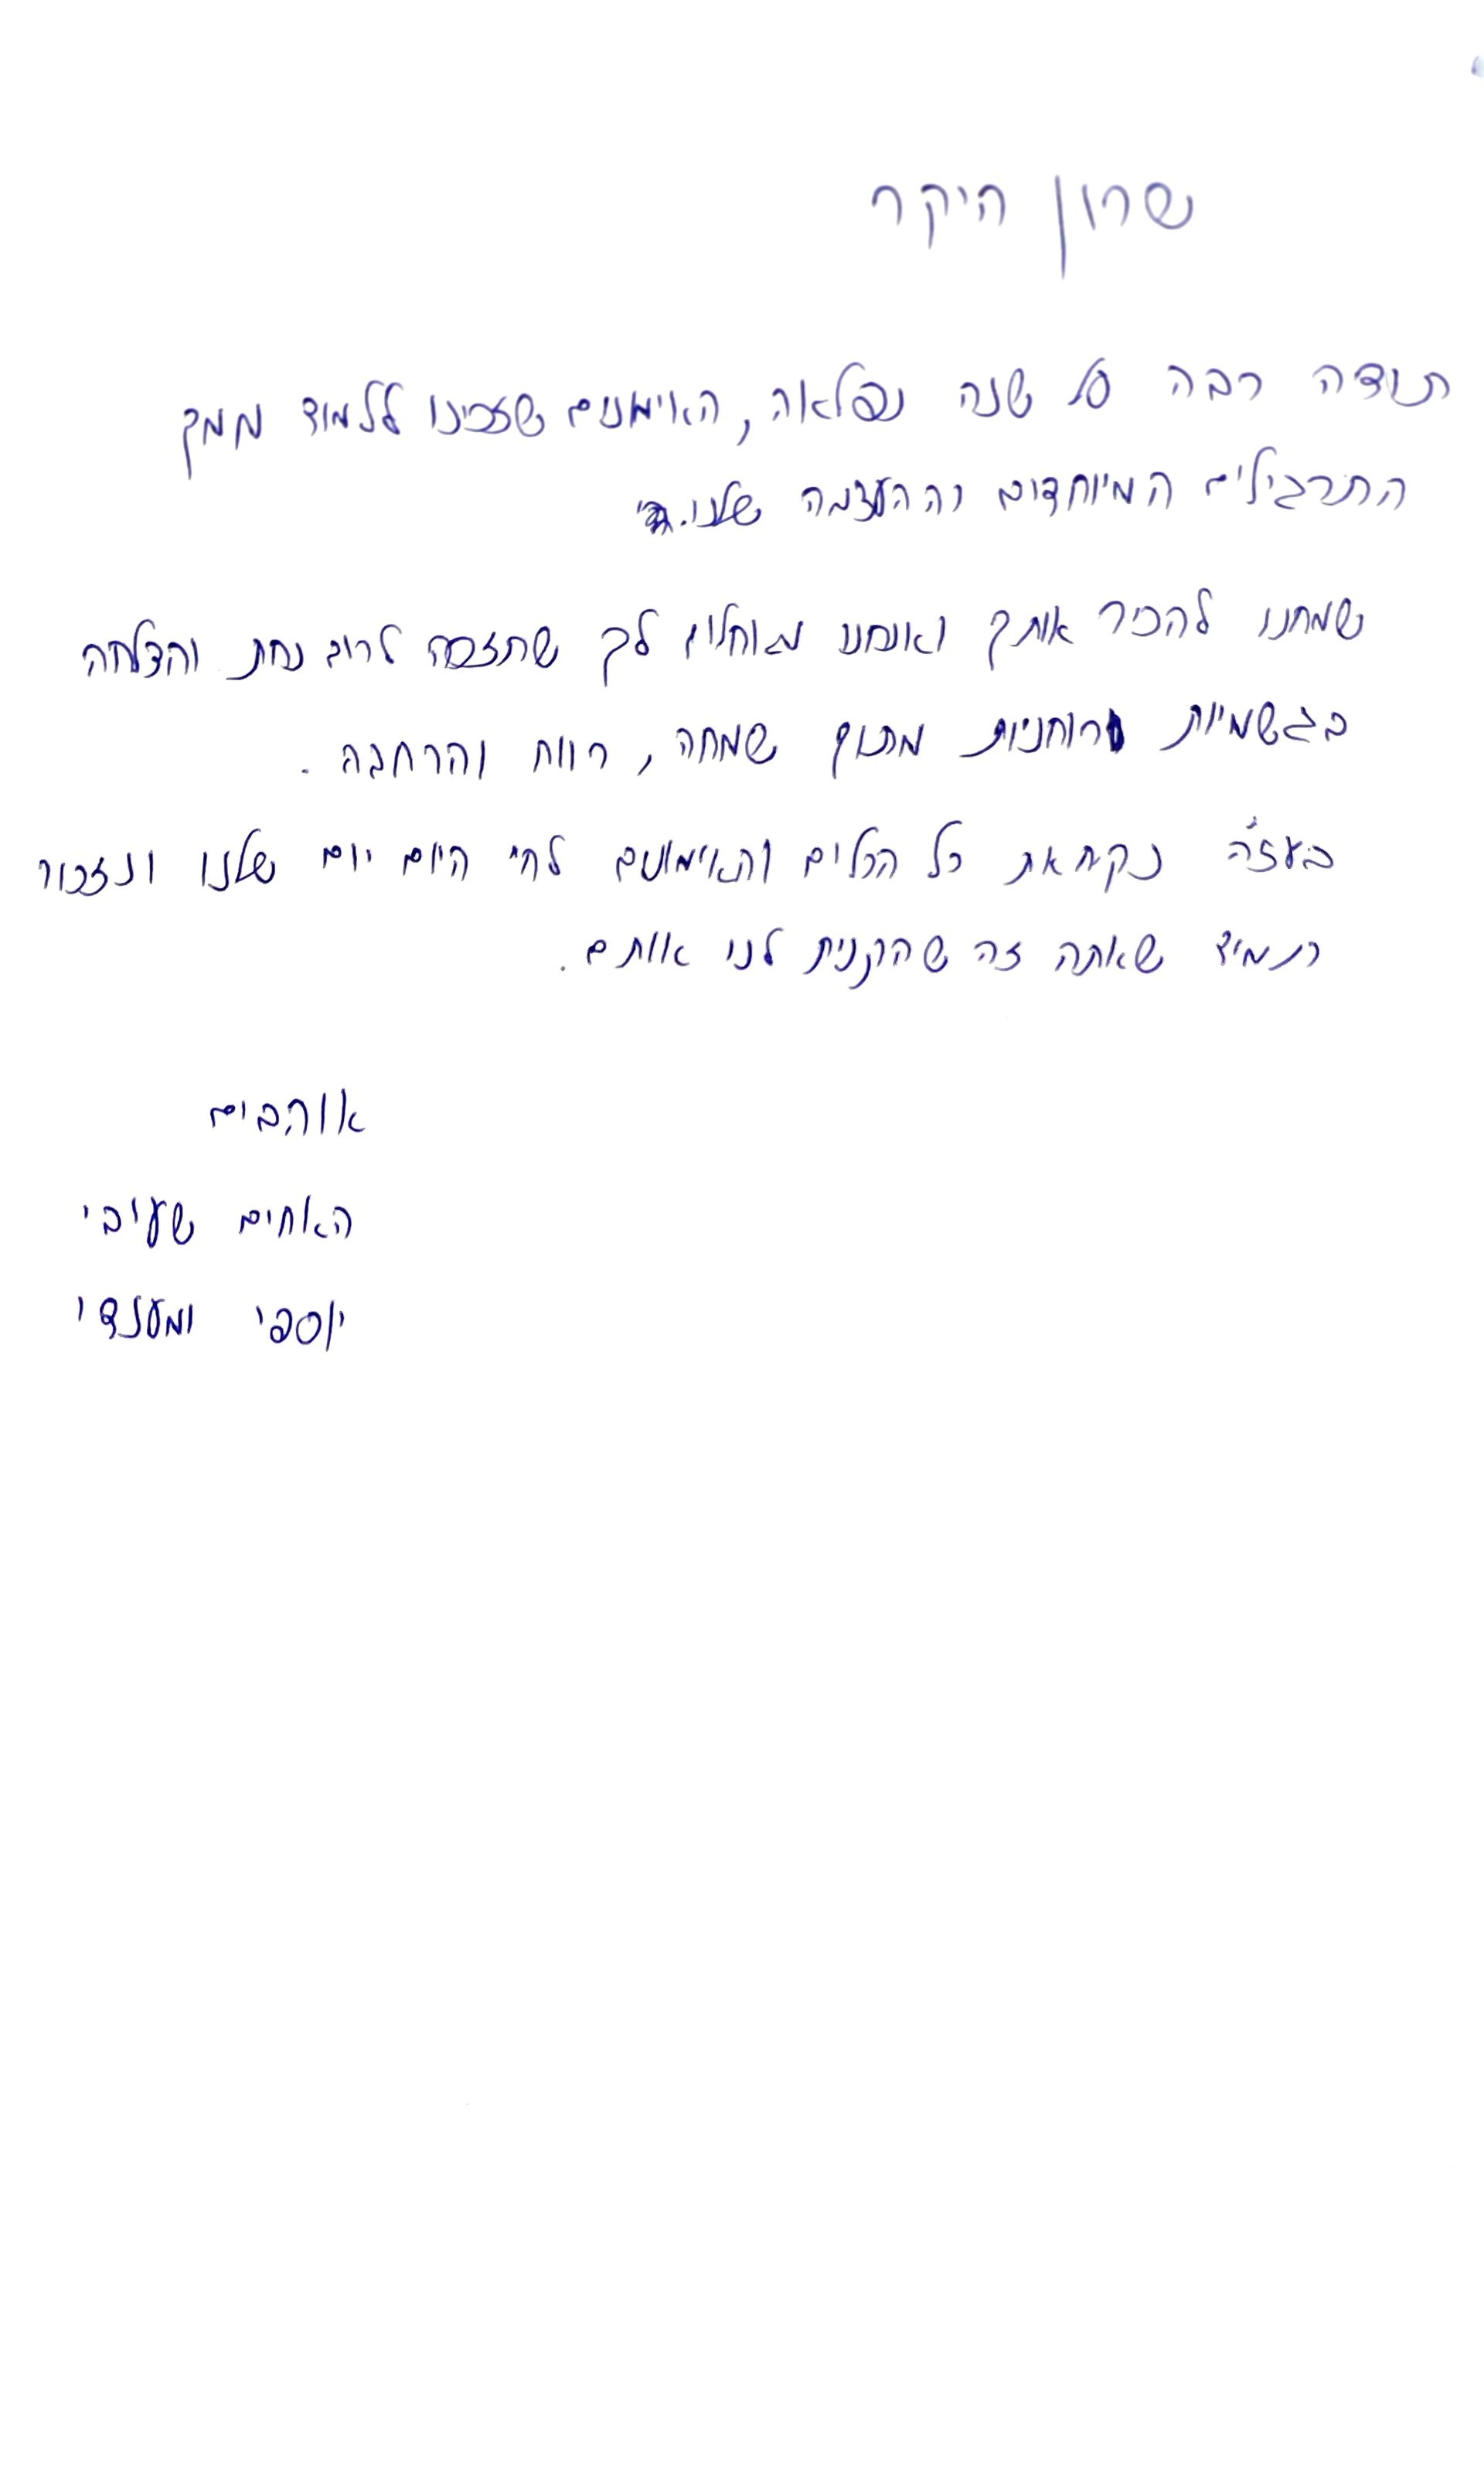 שרון היקר
תודה רבה על שנה נפלאה, האימונים שזכינו ללמוד ממך
התרגילים המיוחדים וההעצמה שלנו.
שמחנו להכיר אותך ואנחנו מאחלים לך שתזכה לרוב נחת והצלחה
בגשמיות ורוחניות מתוך שמחה, רווח והרחבה.
בעז"ה ניקח את כל הכלים והאימונים לחיי היום יום שלנו ונזכור
תמיד שאתה זה שהקנית לנו אותם.
אוהבים
האחים שעיבי
יוספי ומענדי